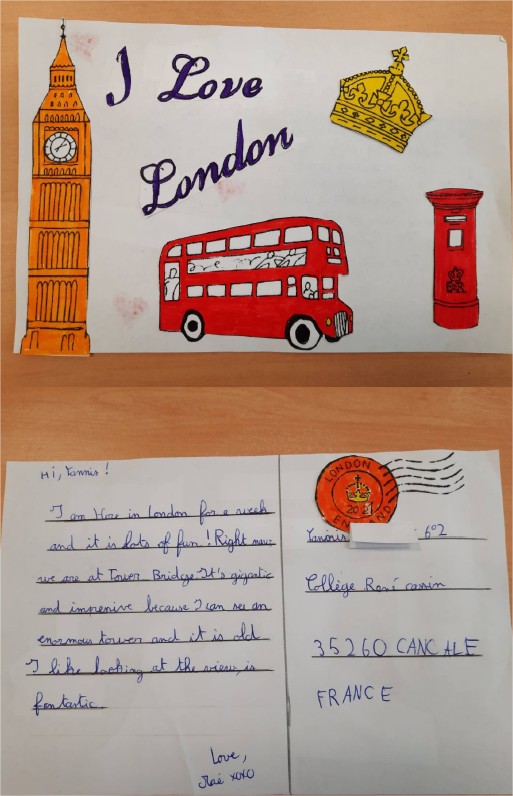 I Love
London
Hi, Yannis!
I am Here in London for a week
and it is lots of fun! Right now
we are at Tower Bridge. It's gigantic
and impressive because I can see an
enormous tower and it is old
I like looking at the view, is
fantastic
Love,
xoxo
LONDON
20
ENGLAND
6°2
Collège René cassin
35260 CANCALE
FRANCE